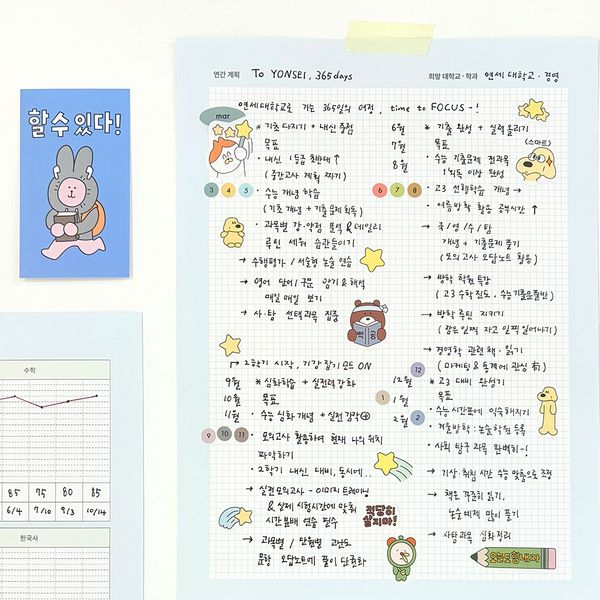 할 수 있다!
연간 계획 To YONSEI, 365days
희망 대학교 · 학과 연세대학교 · 경영
연세대학교로 가는 365일의 여정, time to FOCUS-!
mar
* 기초 다지기 + 내신 중점
목표
· 내신 1등급 초반대 ↑
(중간고사 계획 짜기)
3 4 5
· 수능 개념 학습
(기초 개념 + 기출문제 회독)
· 과목별 강·약점 분석 & 데일리
루틴 세워 습관들이기
→ 수행평가 / 서술형 논술 연습
→ 영어 단어/구문 암기 & 해석
매일 매일 보기
→ 사·탐 선택과목 집중
열공
6월 * 기초 완성 + 실력 올리기
7월 목표
8월 · 수능 기출문제 전과목
1회독 이상 완성
(스마트)
6 7 8
· 고3 선행학습 개념 →
· 여름방학 활용 공부시간 ↑
→ 국/영/수/탐
개념 + 기출문제 풀기
(모의고사 오답노트 활용)
→ 방학 학원 특강
(고3 수학진도, 수능기출문풀반)
→ 방학 루틴 지키기
(같은 일찍 자고 일찍 일어나기)
→ 경영학 관련 책 · 읽기
(마케팅 & 통계에 관심 有)
→ 2학기 시작, 긴장 잡기 모드 ON
9월 * 심화학습 + 실전력 강화
10월 목표
11월 · 수능 심화 개념 + 실전 감각 ⊕
9 10 11
· 모의고사 활용하여 현재 나의 위치
파악하기
· 2학기 내신 대비, 동시에..
→ 실전모의고사 - 이미지 트레이닝
& 실제 시험시간에 맞춰
시간분배 연습 필수
적당히 살지마!
→ 과목별 / 단원별 고난도
문항 오답노트에 풀이 단권화
12
12월 * 고3 대비 완성기
1
1월 목표
2
2월 · 수능시간표에 익숙해지기
· 겨울방학 : 논술학원 등록
· 사회탐구 과목 완벽히-!
→ 기상·취침 시간 수능 맞춤으로 조정
→ 책을 꾸준히 읽기,
논술예제 많이 풀기
→ 사탐과목 심화 정리
오늘도힘내자
수학
85 75 80 85
6/4 7/10 9/3 10/14
한국사